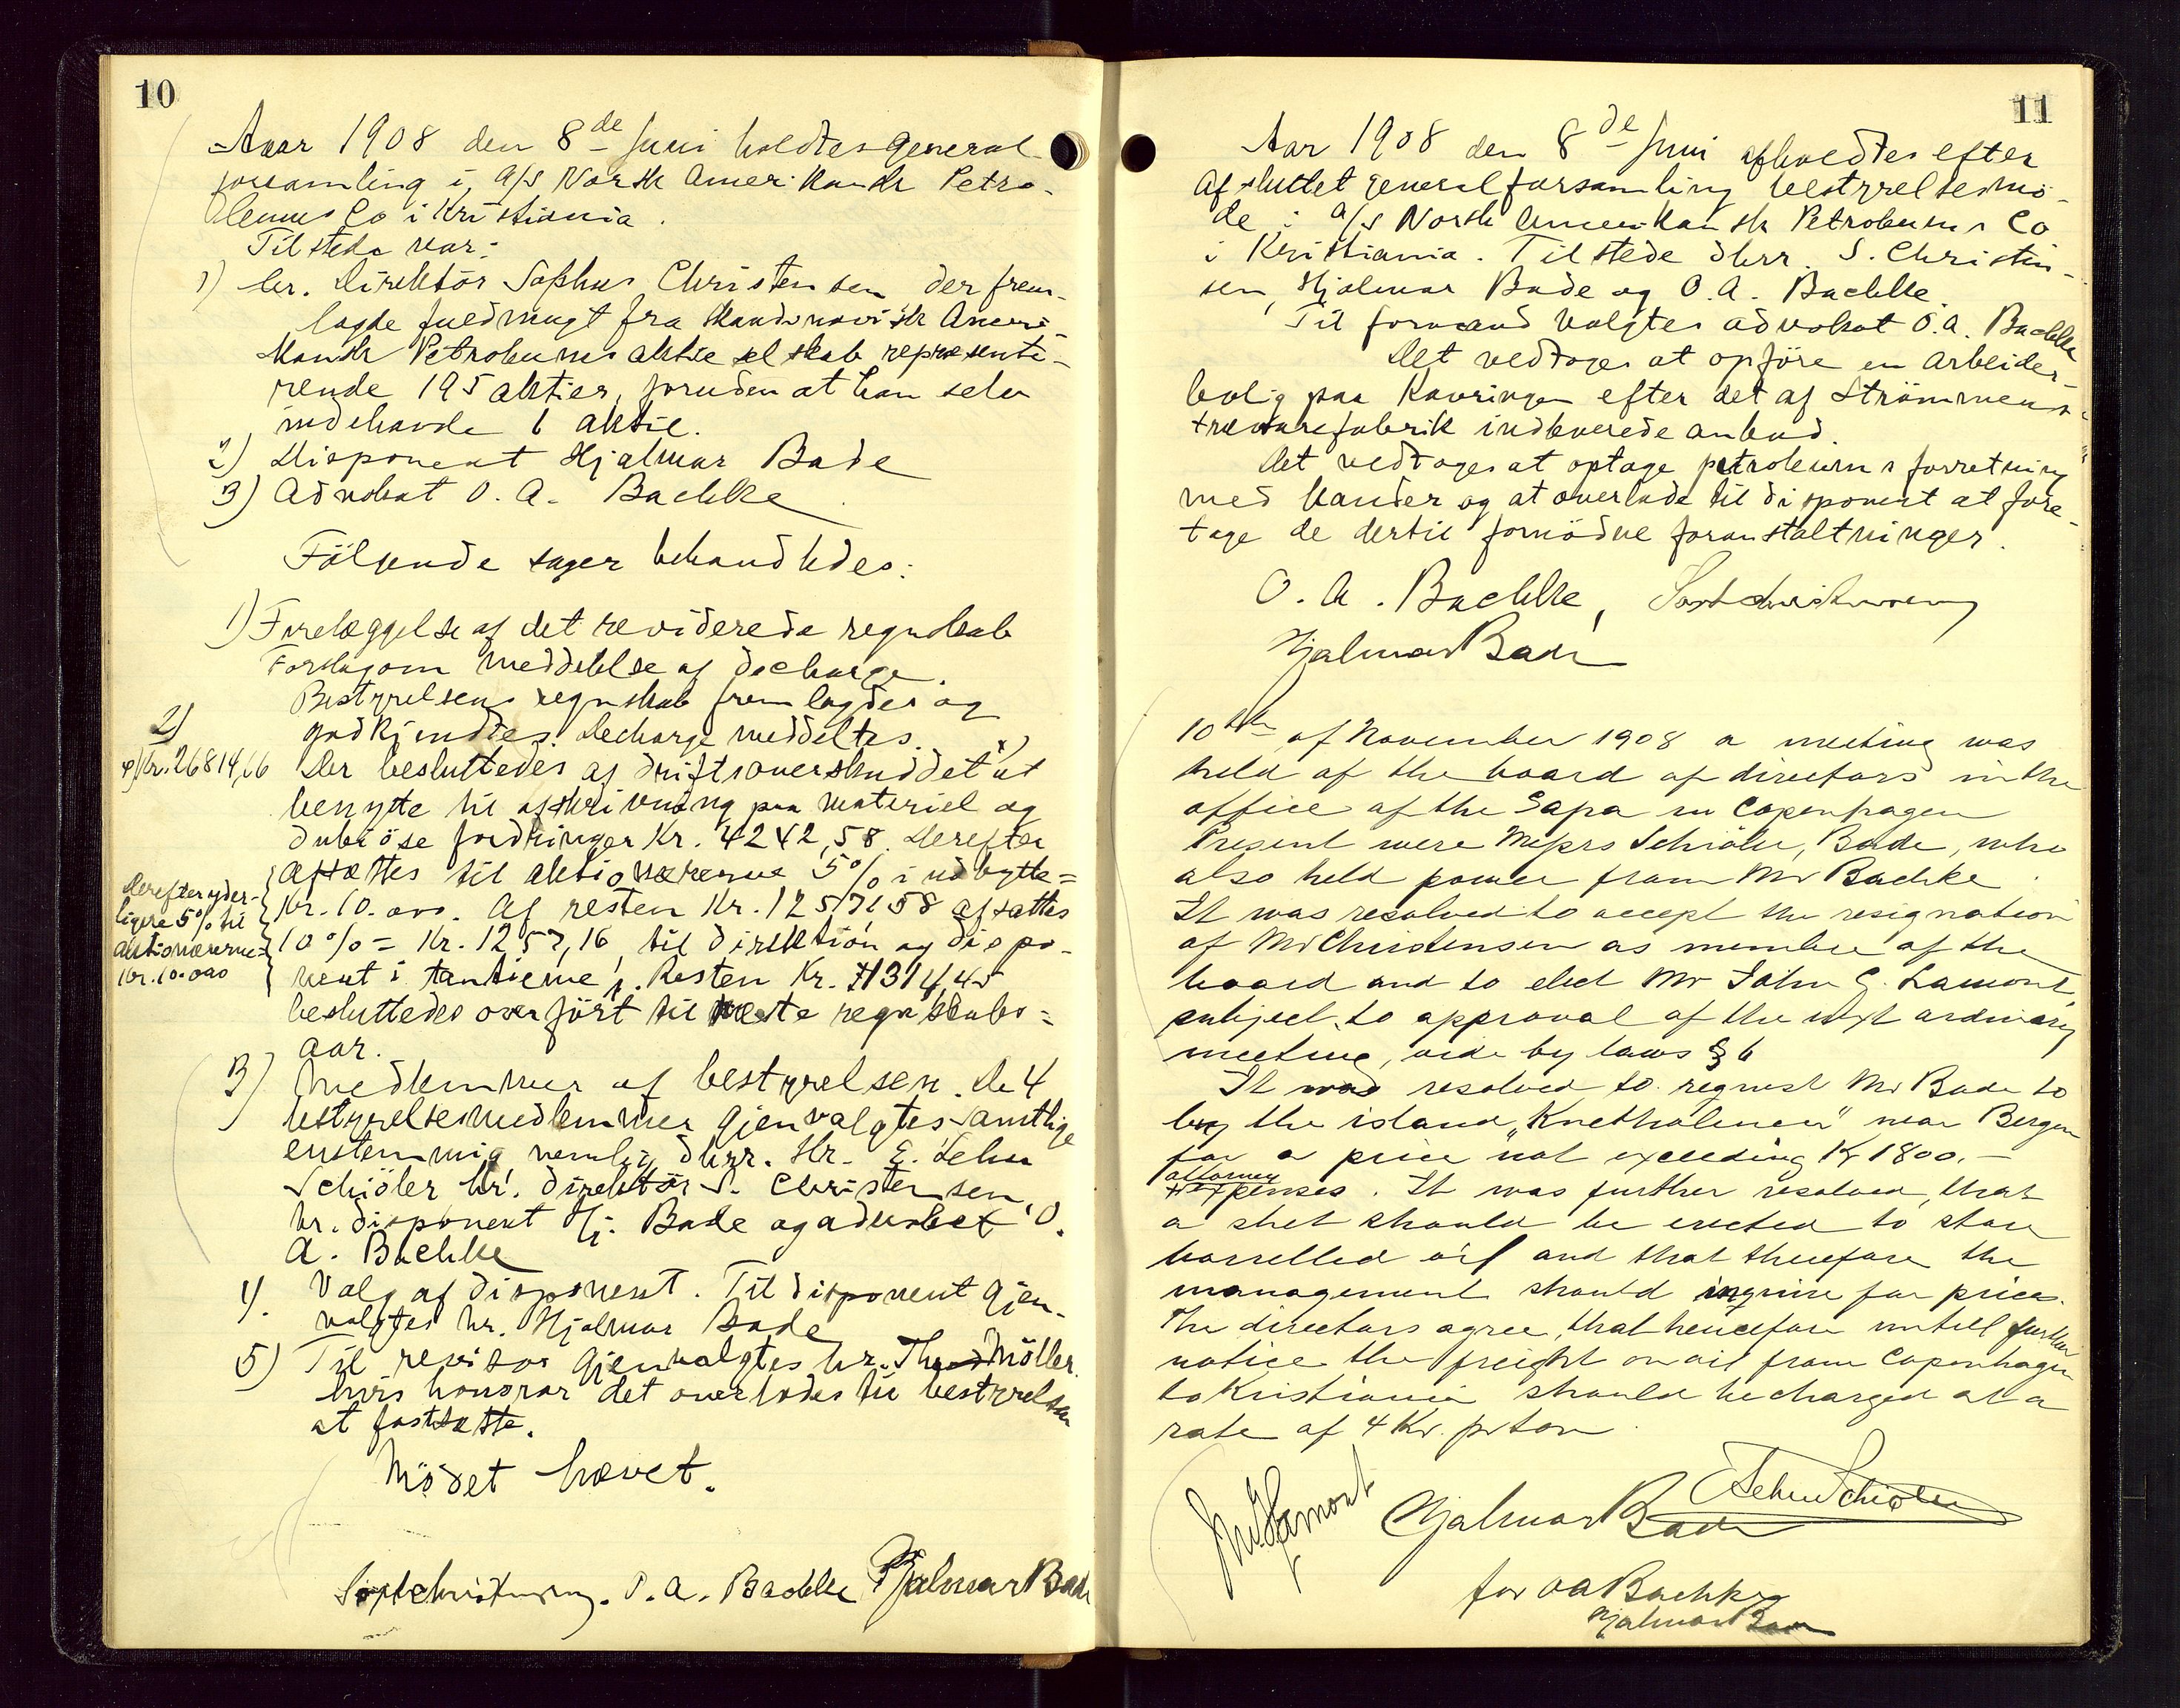 10
Aaar 1908 den 8de Juni holdtes general-
forsamling i A/S Norsk Amerikansk Petro-
leums Co i Kristiania.
Tilstede var:
1) hr. Direktör Sophus Christensen, der frem-
lagde fuldmagt fra Skandinavisk Ameri-
kansk Petroleums aktieselskab repræsente-
rende 195 aktier, foruden at han selv
indehavde 1 aktie.
2) Disponent Hjalmar Bade
3) Advokat O. A. Bachke.
Fölgende sager behandledes:
1) Forelæggelse af det reviderede regnskab
Forslag om meddelelse af decharge.
Bestyrelsens regnskab fremlagdes og
godkjendtes. Decharge meddeltes.
2)
Kr. 26814,66
Der besluttedes af driftsoverskuddet at
benytte til afskrivning paa materiel og
dubiöse fordringer Kr. 4242,58. Derefter
afsættes til aktionærerne 5% i udbytte =
Derefter yder-
ligere 5% til
aktionærerne =
kr. 10.000
Kr. 10.000. Af resten Kr. 12571,58 afsattes
10% = Kr. 1257,16 til direktion og dispo-
nent i tantieme. Resten Kr. 1314,45
besluttedes overfört til næste regnskabs-
aar.
3) Medlemmer af bestyrelsen. De 4
bestyrelsesmedlemmer gjenvalgtes samtlige
enstemmig nemlig dhrr. Hr. E. Lehn
Schiöler hr. direktör S. Christensen,
hr. disponent Hj. Bade og advokat O.
A. Bachke
4). Valg af disponent. Til disponent gjen-
valgtes hr. Hjalmar Bade
5) Til revisor gjenvalgtes hr. Th. Möller
hvis honorar det overlodes til bestyrelsen
at fastsætte.
Mödet hævet.
Soph Christensen. O. A. Bachke Hjalmar Bade
11
Aar 1908 den 8de Juni afholdtes efter
afsluttet generalforsamling bestyrelsesmö-
de i A/S Norsk Amerikansk Petroleums Co
i Kristiania. Tilstede dhrr. S. Christen-
sen, Hjalmar Bade og O. A. Bachke.
Til formand valgtes advokat O. A. Bachke
Det vedtoges at opföre en arbeider-
bolig paa Kavringen efter det af Strömmens
trævarefabrik indleverede anbud.
Det vedtoges at optage petroleumsforretning
med kander og at overlade til disponent at fore-
tage de dertil fornödne foranstaltninger.
O. A. Bachke, Soph Christensen
Hjalmar Bade
10th of November 1908 a meeting was
held of the board of directors in the
office of the Sapa in Copenhagen
Present were Messrs Schiöler, Bade, who
also held power from Mr Bachke.
It was resolved to accept the resignation
of Mr Christensen as member of the
board and to elect Mr John G. Lamont,
subject to approval of the next ordinary
meeting, vide by laws § 6
It was resolved to request Mr Bade to
buy the island "Knetholmen" near Bergen
for a price not exceeding Kr 1800.—
attorney
expenses. It was further resolved, that
a shet should be erected to store
barrelled oil and that therefore the
management should inquire for prices.
The directors agree, that hencefore untill further
notice the freight on oil from Copenhagen
to Kristiania should be charged at a
rate of 4 Kr. pr ton.
Hjalmar Bade Lehn Schiöler
Lamont
for OA Bachke
Hjalmar Bade